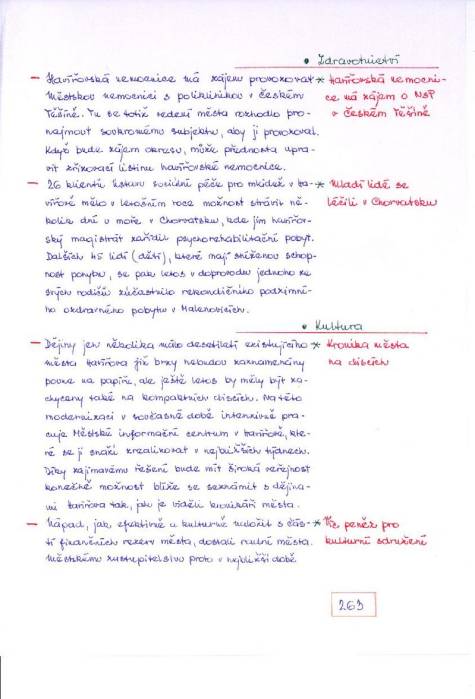 • Zdravotnictví
— Havířovská nemocnice má zájem provozovat
Městskou nemocnici s poliklinikou v Českém
Těšíně. Tu se totiž vedení města rozhodlo pro-
najmout soukromému subjektu, aby ji provozoval.
Když bude zájem okresu, může přednosta upra-
vit zřizovací listinu havířovské nemocnice.
* Havířovská nemocni-
ce má zájem o NsP
v Českém Těšíně
— 26 klientů ústavu sociální péče pro mládež v Ha-
vířově mělo v letošním roce možnost strávit ně-
kolik dnů u moře v Chorvatsku, kde jim havířov-
ský magistrát zařídil psychorehabilitační pobyt.
Dalších 45 lidí (dětí), které mají sníženou schop-
nost pohybu, se pak letos v doprovodu jednoho ze
svých rodičů zúčastnilo rekondičního podzimní-
ho ozdravného pobytu v Malenovicích.
* Mladí lidé se
léčili v Chorvatsku
• Kultura
— Dějiny jen několika málo desetiletí existujícího
města Havířova již brzy nebudou zaznamenány
pouze na papíře, ale ještě letos by měly být za-
chyceny také na kompaktních discích. Na této
modernizaci v současné době intenzivně pra-
cuje Městské informační centrum v Havířově, kte-
ré se ji snaží zrealizovat v nejbližších týdnech.
Díky zajímavému řešení bude mít široká veřejnost
konečně možnost blíže se seznámit s dějina-
mi Havířova tak, jak je viděli kronikáři města.
* Kronika města
na discích
— Nápad, jak efektivně a kulturně naložit s čás-
tí finančních rezerv města, dostali radní města.
Městskému zastupitelstvu proto v nejbližší době
* Víc peněz pro
kulturní sdružení
263